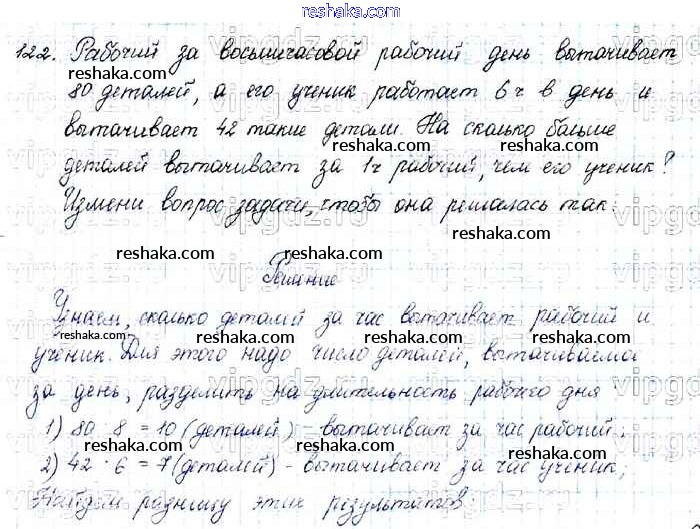 reshaka.com
122. Рабочий за восьмичасовой рабочий день вытачивает
reshaka.com reshaka.com
80 деталей, а его ученик работает 6 ч в день и
вытачивает 42 такие детали. На сколько больше
reshaka.com reshaka.com
деталей вытачивает за 1 ч рабочий, чем его ученик?
Измени вопрос задачи, чтобы она решалась так.
reshaka.com reshaka.com
Решение
Узнаем, сколько деталей за час вытачивает рабочий и
reshaka.com reshaka.com
ученик. Для этого надо число деталей, вытачиваемое
за день, разделить на длительность рабочего дня
reshaka.com reshaka.com
1) 80 : 8 = 10 (деталей) - вытачивает за час рабочий;
reshaka.com reshaka.com
2) 42 : 6 = 7 (деталей) - вытачивает за час ученик;
Найдем разницу этих результатов
reshaka.com reshaka.com